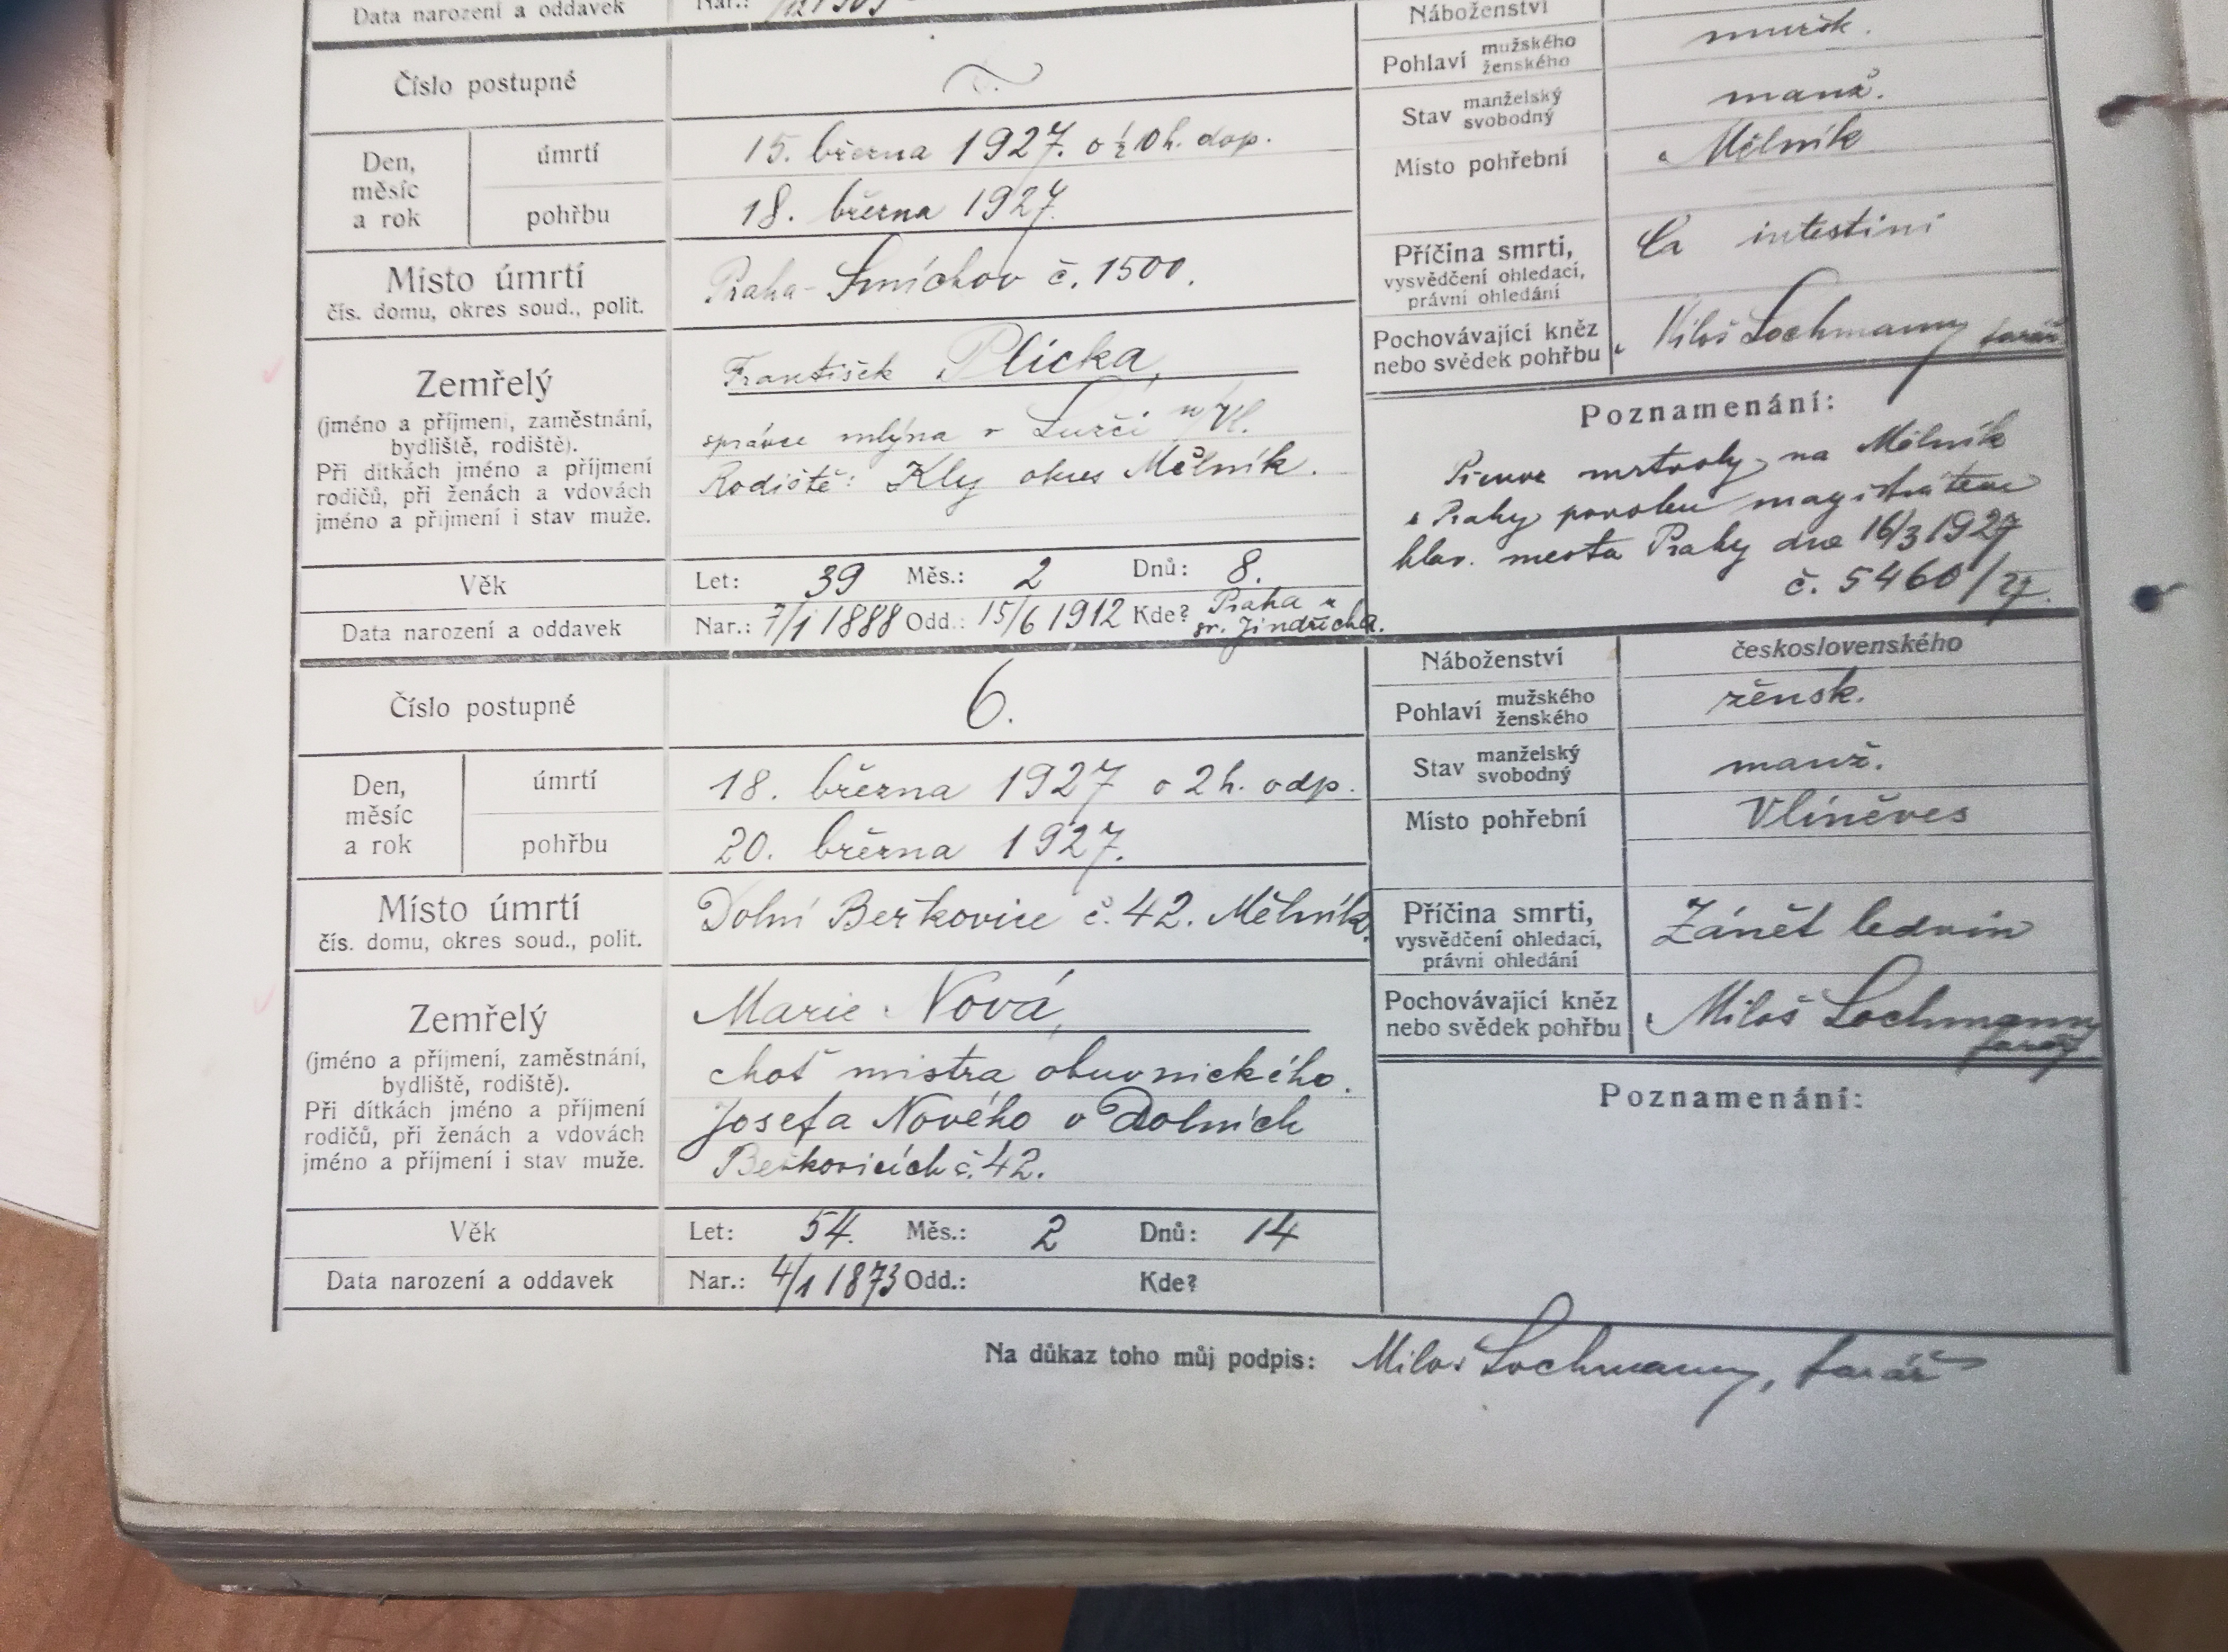 Data narození a oddavek Nar.:
Číslo postupné
Den, měsíc a rok
úmrtí 15. března 1927. o ½ 10 h. dop.
pohřbu 18. března 1927.
Místo úmrtí
čís. domu, okres soud., polit.
Praha-Smíchov č. 1500.
Zemřelý
(jméno a příjmení, zaměstnání,
bydliště, rodiště).
Při dítkách jméno a příjmení
rodičů, při ženách a vdovách
jméno a příjmení i stav muže.
František Plicka,
správce mlýna v n/Vl.
Rodiště: Kly okres Mělník.
Věk Let: 39 Měs.: 2 Dnů: 8.
Data narození a oddavek Nar.: 7/1 1888 Odd.: 15/6 1912 Kde? Praha u
sv. Jindřicha.
Náboženství
Pohlaví mužského
ženského
mužsk.
Stav manželský
svobodný
manž.
Místo pohřební Mělník
Příčina smrti,
vysvědčení ohledací,
právní ohledání
Ca intestini
Pochovávající kněz
nebo svědek pohřbu
Miloš Lochmann, farář
Poznamenání:
Převoz mrtvoly na Mělník
z Prahy povolen magistrátem
hlav. města Prahy dne 16/3 1927
č. 5460/27.
Číslo postupné 6.
Den, měsíc a rok
úmrtí 18. března 1927 o 2 h. odp.
pohřbu 20. března 1927.
Místo úmrtí
čís. domu, okres soud., polit.
Dolní Beřkovice č. 42. Mělník.
Zemřelý
(jméno a příjmení, zaměstnání,
bydliště, rodiště).
Při dítkách jméno a příjmení
rodičů, při ženách a vdovách
jméno a příjmení i stav muže.
Marie Nová,
choť mistra obuvnického.
Josefa Nového v Dolních
Beřkovicích č. 42.
Věk Let: 54. Měs.: 2 Dnů: 14
Data narození a oddavek Nar.: 4/1 1873 Odd.: Kde?
Náboženství československého
Pohlaví mužského
ženského
žensk.
Stav manželský
svobodný
manž.
Místo pohřební Vliněves
Příčina smrti,
vysvědčení ohledací,
právní ohledání
Zánět ledvin
Pochovávající kněz
nebo svědek pohřbu
Miloš Lochmann
farář
Poznamenání:
Na důkaz toho můj podpis: Miloš Lochmann, farář